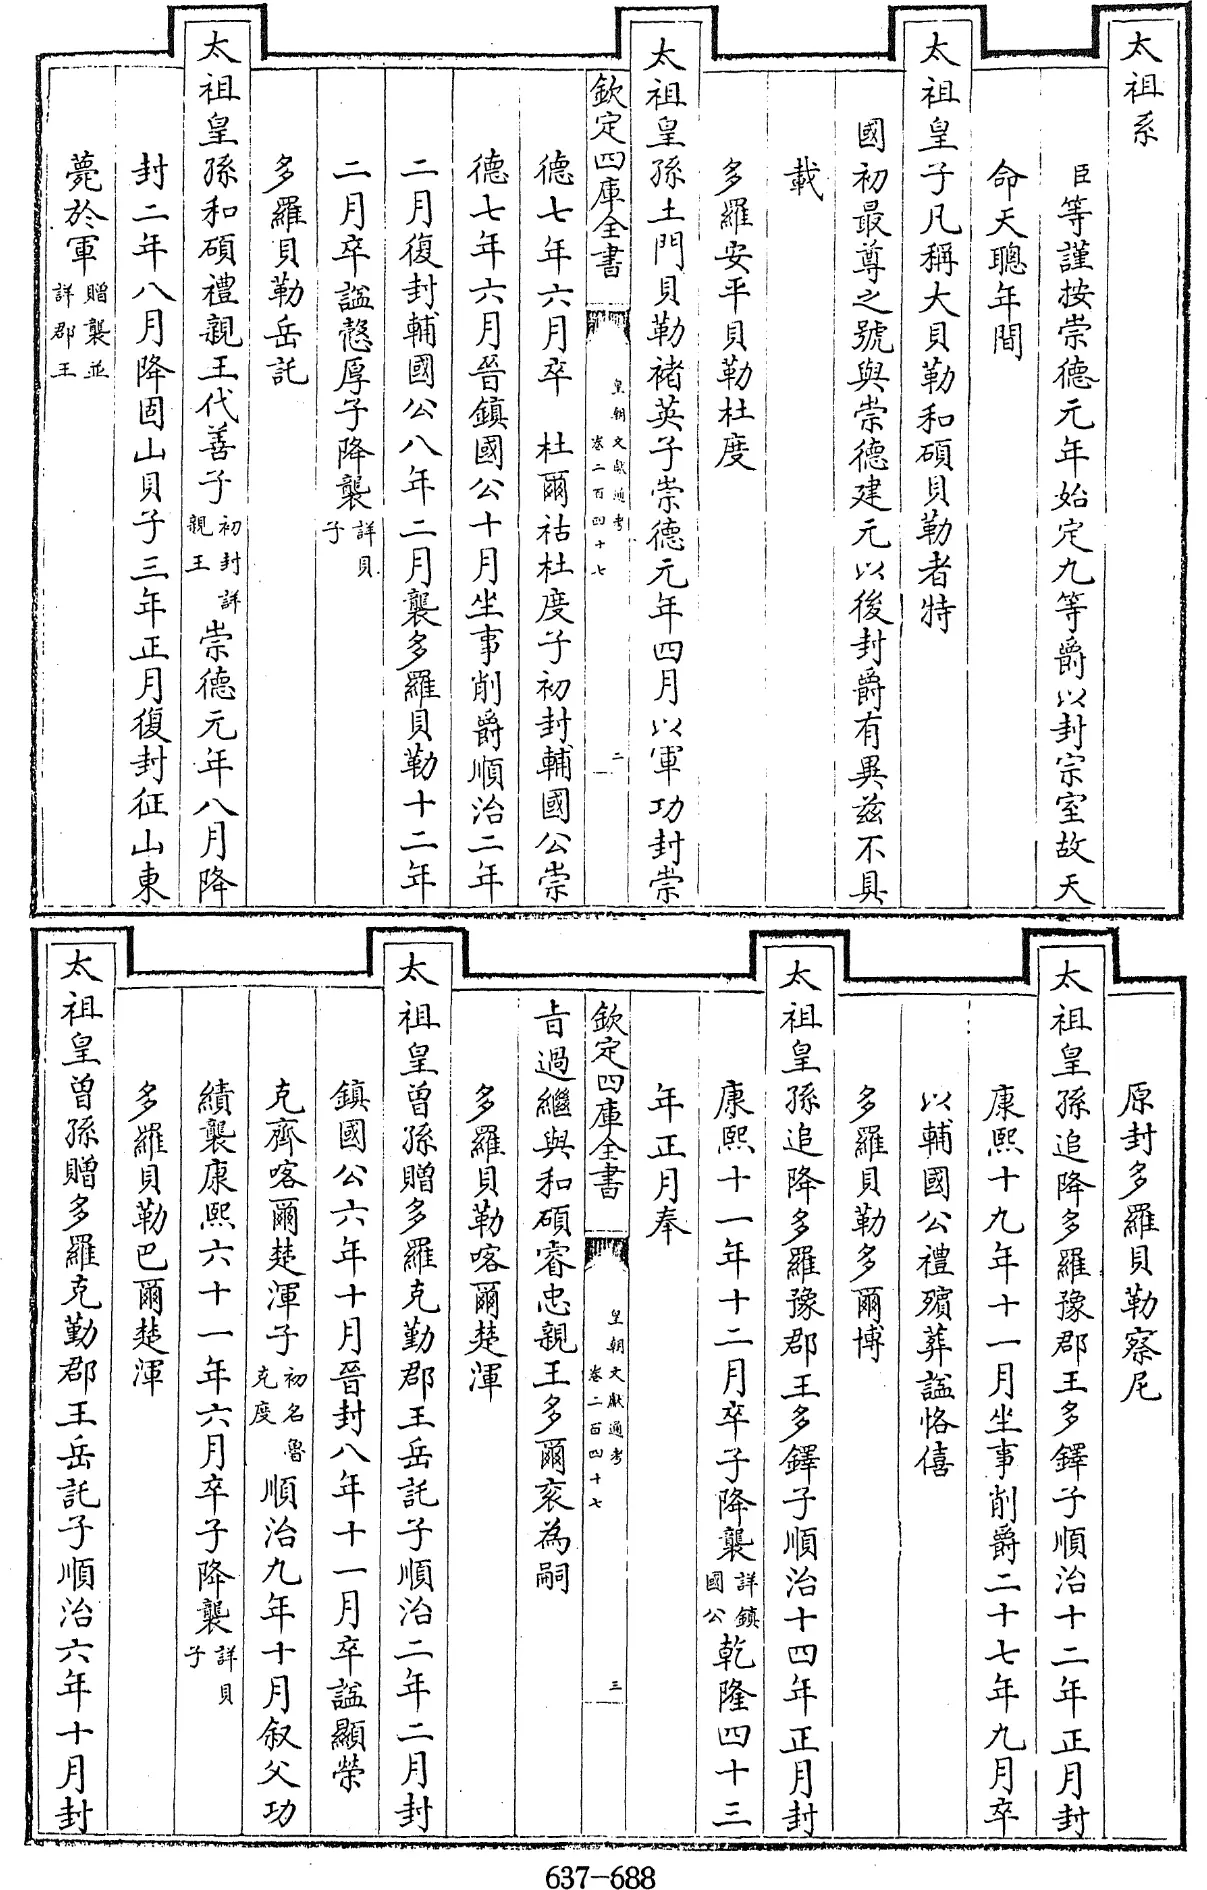 太祖系
臣等謹按崇德元年始定九等爵以封宗室故天
命天聰年間
太祖皇子凡稱大貝勒和碩貝勒者特
國初最尊之號與崇德建元以後封爵有異茲不具
載
多羅安平貝勒杜度
太祖皇孫土門貝勒褚英子崇德元年四月以軍功封崇
欽定四庫全書 皇朝文獻通考卷二百四十七 二
德七年六月卒 杜爾祜杜度子初封輔國公崇
德七年六月晉鎮國公十月坐事削爵順治二年
二月復封輔國公八年二月襲多羅貝勒十二年
二月卒諡慤厚子降襲詳貝子
多羅貝勒岳託
太祖皇孫和碩禮親王代善子初封詳親王崇德元年八月降
封二年八月降固山貝子三年正月復封征山東
薨於軍贈襲並詳郡王
原封多羅貝勒察尼
太祖皇孫追降多羅豫郡王多鐸子順治十二年正月封
康熙十九年十一月坐事削爵二十七年九月卒
以輔國公禮殯葬諡恪僖
多羅貝勒多爾博
太祖皇孫追降多羅豫郡王多鐸子順治十四年正月封
康熙十一年十二月卒子降襲詳鎮國公乾隆四十三
年正月奉
欽定四庫全書 皇朝文獻通考卷二百四十七 三
旨過繼與和碩睿忠親王多爾袞為嗣
多羅貝勒喀爾楚渾
太祖皇曾孫贈多羅克勤郡王岳託子順治二年二月封
鎮國公六年十月晉封八年十一月卒諡顯榮
克齊喀爾楚渾子初名魯克度順治九年十月敘父功
績襲康熙六十一年六月卒子降襲詳貝子
多羅貝勒巴爾楚渾
太祖皇曾孫贈多羅克勤郡王岳託子順治六年十月封
637-688